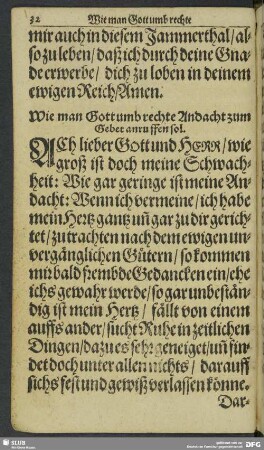 32 Wie man Gott umb rechte
mir auch in diesem Jammerthal/ al-
so zu leben/ daß ich durch deine Gna-
de erwerbe/ dich zu loben in deinem
ewigen Reich/ Amen.
Wie man Gott umb rechte Andacht zum
Gebet anruffen sol.
ACh lieber GOtt und HERR/ wie
groß ist doch meine Schwach-
heit: Wie gar geringe ist meine An-
dacht: Wenn ich vermeine/ ich habe
mein Hertz gantz uñ gar zu dir gerich-
tet/ zu trachten nach dem ewigen un-
vergänglichen Gütern/ so kommen
mir bald frembde Gedancken ein/ ehe
ichs gewahr werde/ so gar unbestän-
dig ist mein Hertz/ fällt von einem
auffs ander/ sucht Ruhe in zeitlichen
Dingen/ dazu es sehr geneiget/ uñ fin-
det doch unter allen nichts/ darauff
sichs fest und gewiß verlassen könne.
Dar-
SLUB
DFG